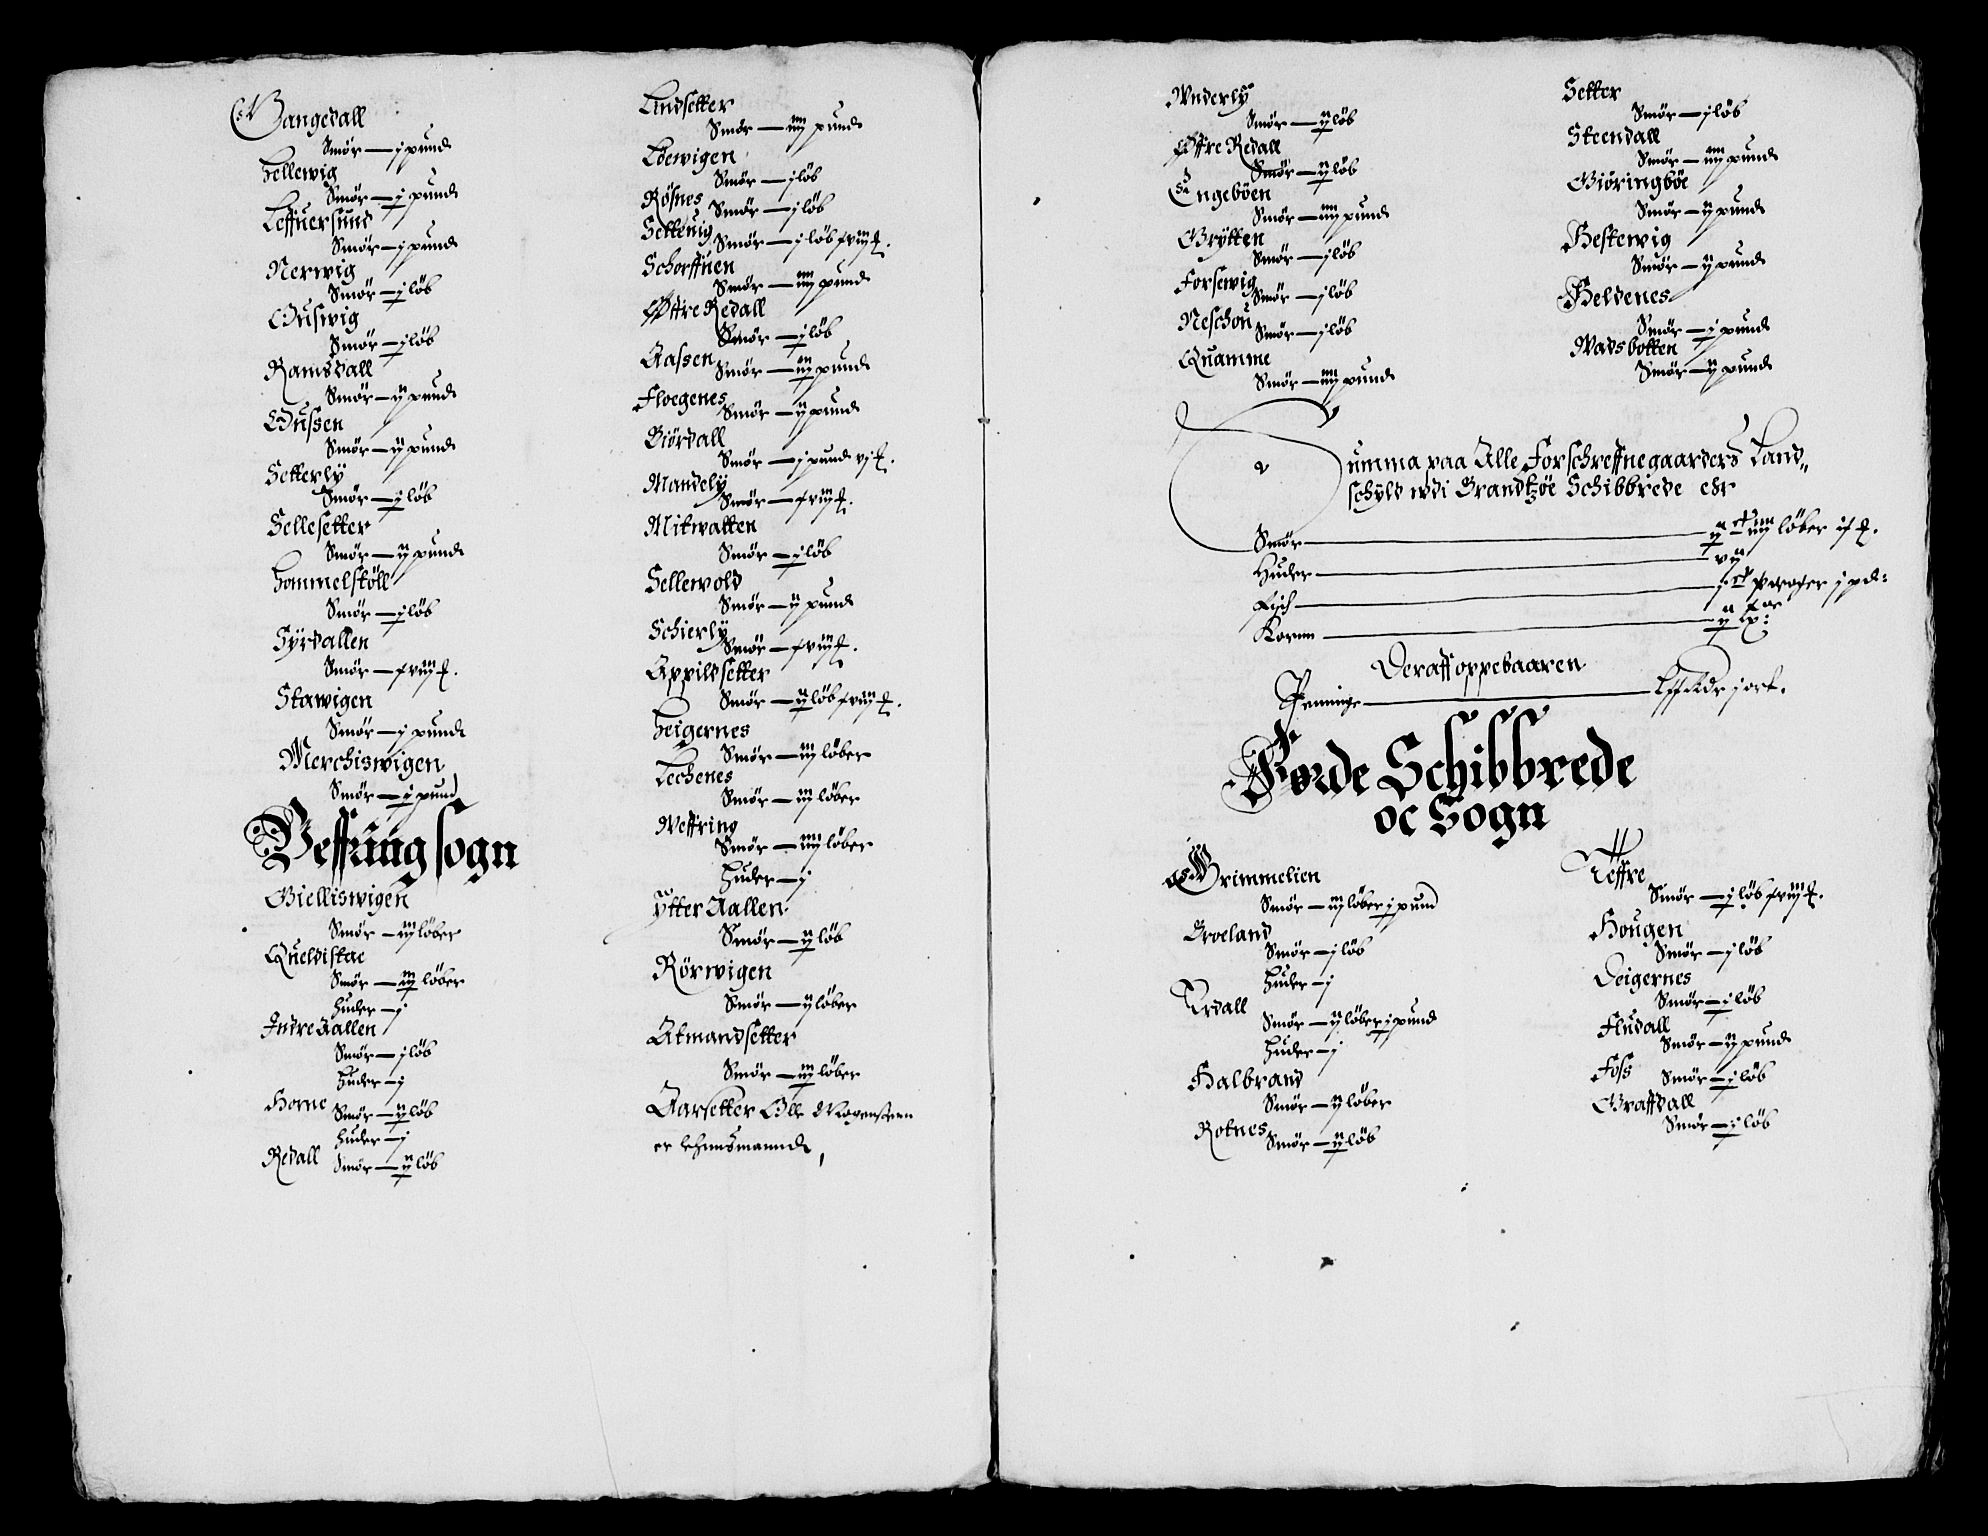 Gangedall
Smör — j pund
Hellewig
Smör — j pund
Leffuersund
Smör — j pund
Nerwig
Smör — j löb
Smör — j löb
Ramsdall
Smör — ij pund
Smör — ij pund
Setterly
Smör — j löb
Sellesetter
Smör — ij pund
Hommelstöll
Smör — j löb
Syrdallen
Smör —
Stawigen
Smör — j pund
Merchiswigen
Smör — j pund
Veffring sogn
Gielliswigen
Smör — iij löber
Queldistac
Smör — iij löber
Huder — j
Indre Aallen
Smör — j löb
Huder — j
Horne
Smör — ij löb
Huder — j
Redall Smör — ij löb
Lindsetter
Smör — iiij pund
Löewigen
Smör — j löb
Rösnes
Smör — j löb
Settenig
Smör — j löb
Schorffuen
Smör — iiij pund
Øffre Redall
Smör — j löb
Aassen
Smör — iij pund
Floegenes
Smör — ij pund
Giördall
Smör — j pund
Mandely
Smör —
Mitwatten
Smör — j löb
Sellewold
Smör — ij pund
Schierly
Smör —
Appildsetter
Smör — ij löb
Heigernes
Smör — iij löber
Lechenes
Smör — iij löber
Weffring
Smör — iiij löber
Huder — j
Ytter Aallen
Smör — ij löb
Rörwigen
Smör — ij löber
Atmandsetter
Smör — iij löber
Aarsetter Olle Mogenssenn
er lehnsmannd
Wnderly
Smör — ij löb
Øffre Redall
Smör — ij löb
Engeböen
Smör — iiij pund
Grytten
Smör — j löb
Forsewig
Smör — j löb
Neschou
Smör — j löb
Quamme
Smör — iiij pund
Setter
Smör — j löb
Steendall
Smör — iiij pund
Giöringböe
Smör — ij pund
Hestewig
Smör — ij pund
Heldenes
Smör — j pund
Wadsbotten
Smör — ij pund
Summa paa Alle Forschreffne gaarders Land„
schyld wdi Brandtzöe Schibbrede ehr
Smör — löber
Huder — vij
Fisch —
Kornn —
Deraff oppebaaren
Penninge — j ort.
Førde Schibbrede
oc Sogn
Grimmelien
Smör — iij löber j pund
Groeland
Smör — j löb
Huder — j
Erdall
Smör — ij löber j pund
Huder — j
Halbrand
Smör — ij löber
Rotnes
Smör — ij löb
Teffre
Smör — j löb
Hougen
Smör — j löb
Deigernes
Smör — j löb
Fludall
Smör — ij pund
Foss
Smör — j löb
Graffdall
Smör — j löb